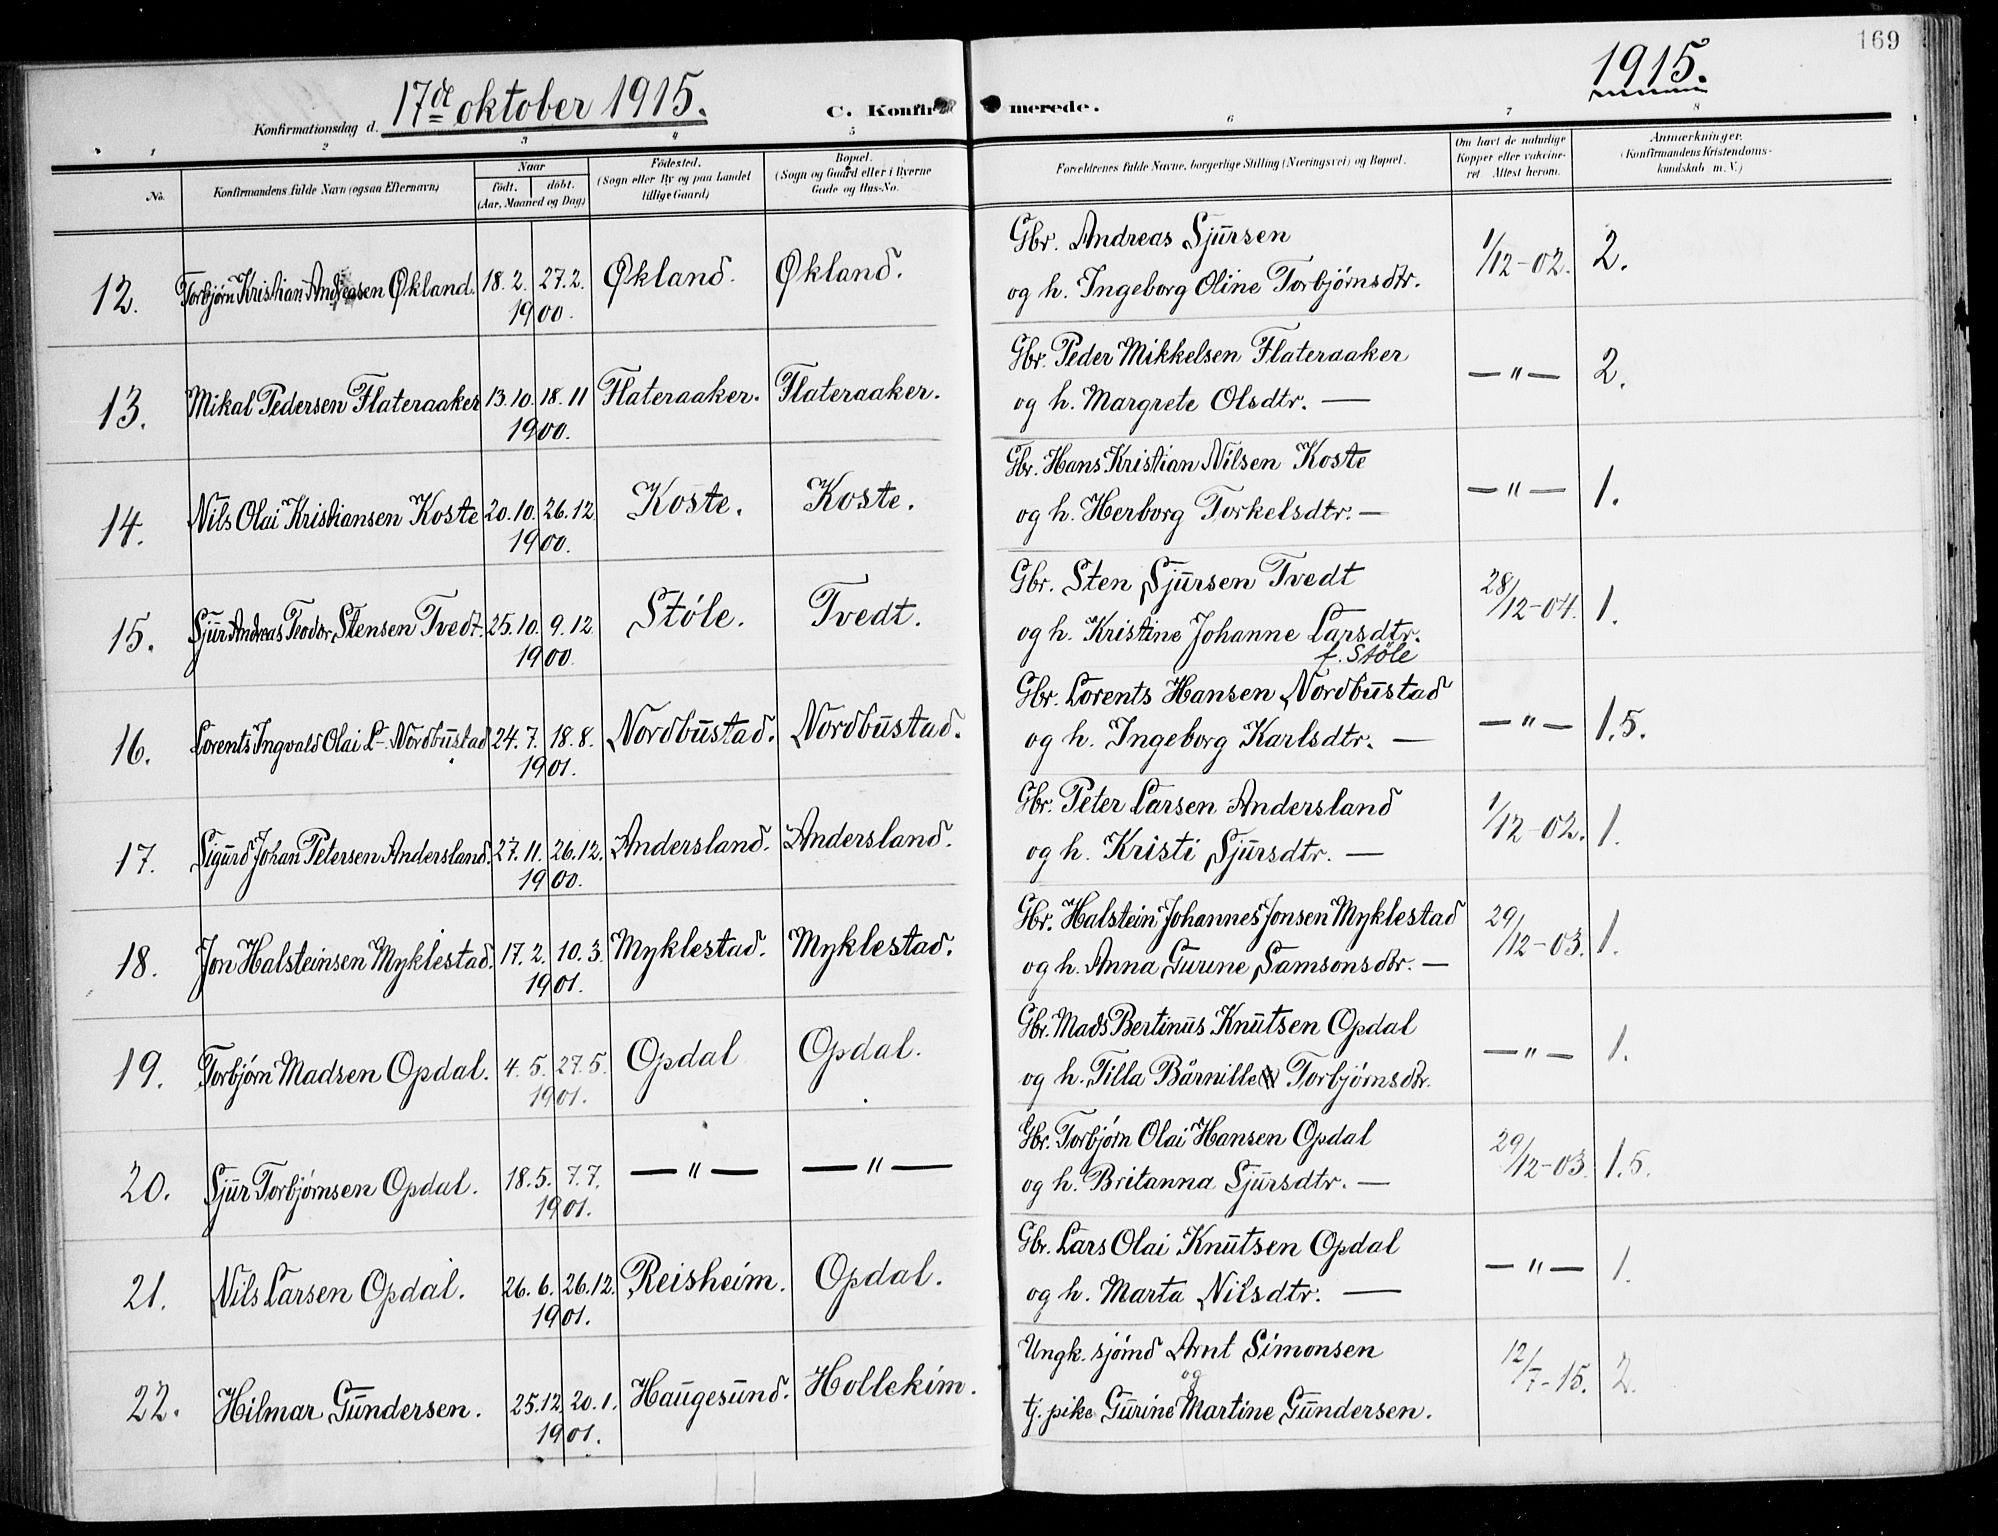 169
1915.
Konfirmationsdag d. 17de oktober 1915. C. Konfirmerede.
1 2 3 4 5 6 7 8
No. Konfirmandens fulde Navn (ogsaa Efternavn) Naar født. døbt. (Aar, Maaned og Dag) Fødested. (Sogn eller By og paa Landet tillige Gaard) Bopæl. (Sogn og Gaard eller i Byerne Gade og Hus-No. Forældrenes fulde Navne, borgerlige Stilling (Næringsvei) og Bopæl. Om havt de naturlige Kopper eller vakcineret. Attest herom. Anmærkninger. (Konfirmandens Kristendomskundskab m. V.)
12. Torbjørn Kristian Andreasen Økland. 18. 2. 27. 2. Økland. Økland. Gbr. Andreas Sjursen 1/12-02. 2.
1900. og h. Ingeborg Oline Torbjørnsdtr.
13. Mikal Pedersen Flateraaker 13. 10. 18. 11 Flateraaker. Flateraaker. Gbr. Peder Mikkelsen Flateraaker — " — 2.
1900. og h. Margrete Olsdtr. —
14. Nils Olai Kristiansen Koste 20. 10. 26. 12. Koste. Koste. Gbr. Hans Kristian Nilsen Koste — " — 1.
1900. og h. Herborg Torkelsdtr. —
15. Sjur Andreas Teodor Stensen Tvedt. 25. 10. 9. 12. Støle. Tvedt. Gbr. Sten Sjursen Tvedt 28/12-04. 1.
1900. og h. Kristine Johanne Larsdtr.
f. Støle
16. Lorents Ingvald Olai L- Nordbustad 24. 7. 18. 8. Nordbustad. Nordbustad. Gbr. Lorents Hansen Nordbustad — " — 1.5.
1901. og h. Ingeborg Karlsdtr. —
17. Sigurd Johan Petersen Andersland. 27. 11. 26. 12. Andersland. Andersland. Gbr. Peter Larsen Andersland 1/12-02. 1.
1900. og h. Kristi Sjursdtr. —
18. Jon Halsteinsen Myklestad. 17. 2. 10. 3. Myklestad. Myklestad. Gbr. Halstein Johannes Jonsen Myklestad 29/12-03. 1.
1901. og h. Anna Gurine Samsonsdtr. —
19. Torbjørn Madsen Opdal. 4. 5. 27. 5. Opdal Opdal. Gbr. Mads Bertinus Knutsen Opdal — " — 1.
1901. og h. Tilla Bårnille Torbjørnsdtr.
20. Sjur Torbjørnsen Opdal. 18. 5. 7. 7. — " — — " — Gbr. Torbjørn Olai Hansen Opdal 29/12-03. 1.5.
1901. og h. Britanna Sjursdtr. —
21. Nils Larsen Opdal. 26. 6. 26. 12. Reisheim. Opdal. Gbr. Lars Olai Knutsen Opdal — " — 1.
1901. og h. Marta Nilsdtr. —
22. Hilmar Gundersen. 25. 12. 20. 1. Haugesund. Hollekim. Ungk. sjømd Arnt Simonsen 12/7-15. 2.
1901. og
tj. pike Gurine Martine Gundersen.